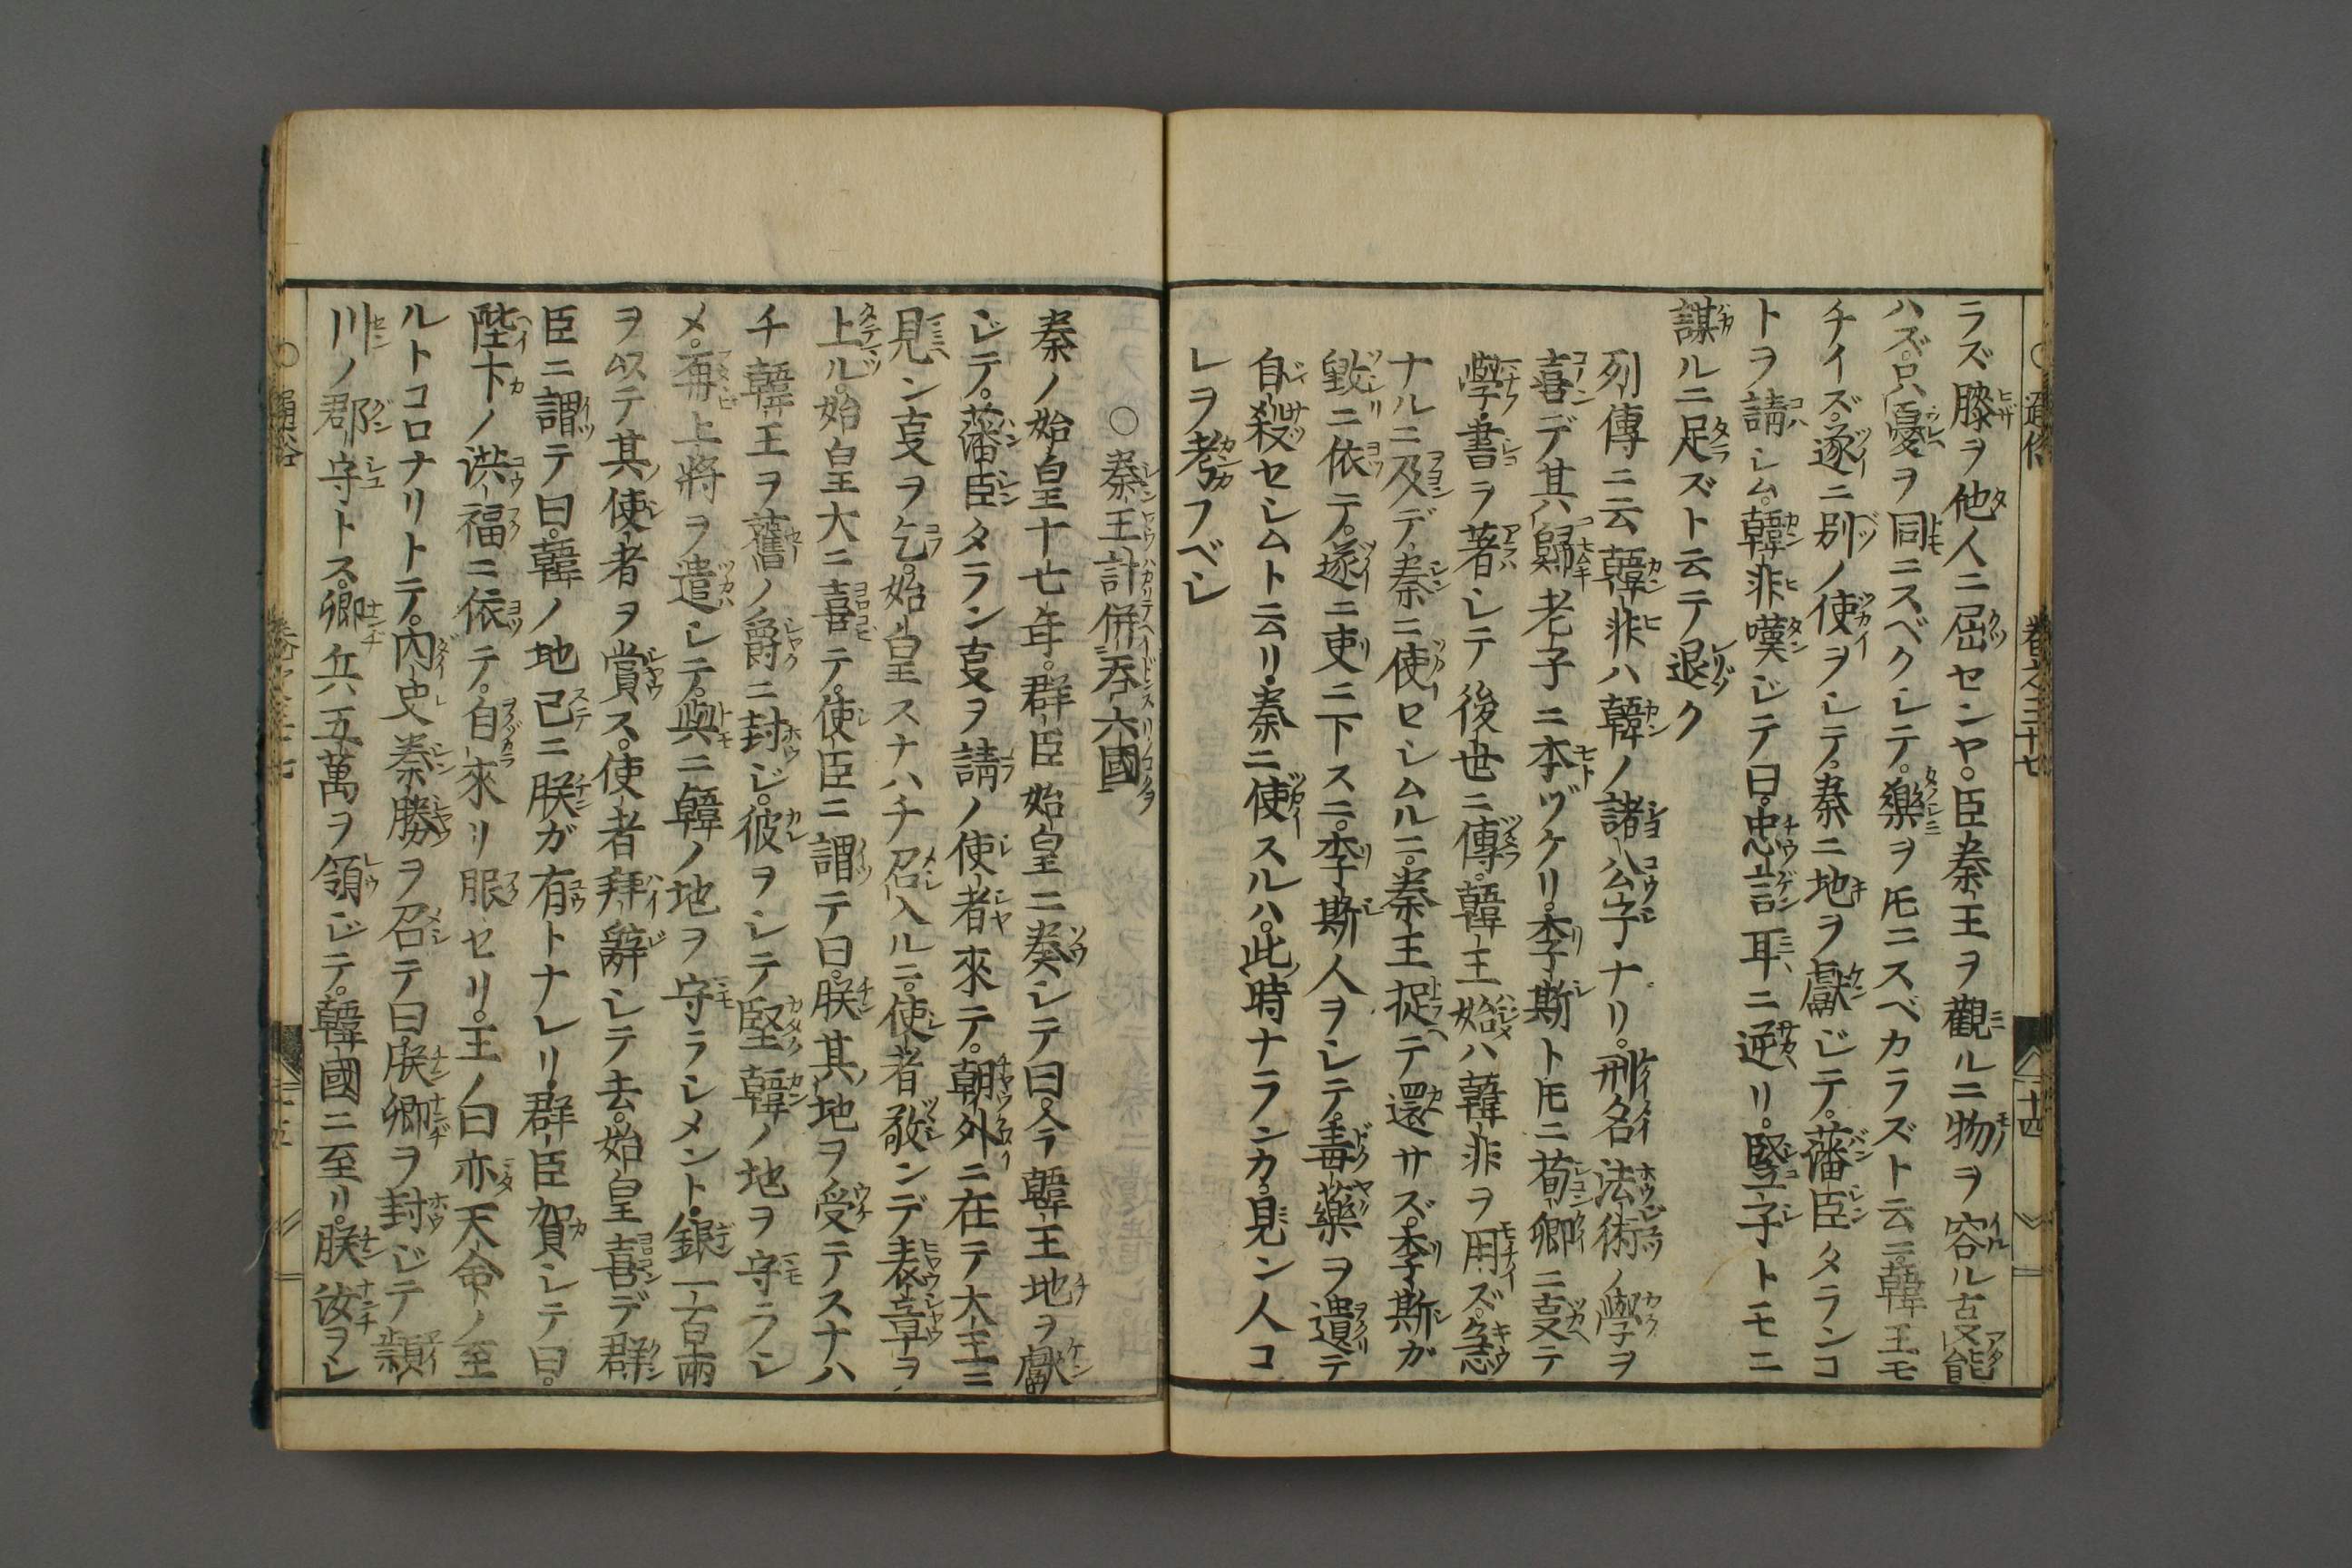 ラズ膝ヲ他人ニ屈センヤ。臣秦王ヲ觀ルニ物ヲ容ルヿ能
ハズ。只憂ヲ同ニスベクシテ。樂ヲ𪜈ニスベカラズト云ニ。韓王モ
チイズ。遂ニ別ノ使ヲシテ。秦ニ地ヲ獻ジテ。藩臣タランコ
トヲ請シム。韓非嘆ジテ曰。忠言耳ニ逆リ。豎子トモニ
謀ルニ足ズト云テ退ク
列傳ニ云韓非ハ韓ノ諸公子ナリ。刑名法術ノ學ヲ
喜デ其歸老子ニ本ヅケリ。李斯ト𪜈ニ荀卿ニ事テ
學。書ヲ著シテ後世ニ傳。韓王始ハ韓非ヲ用ズ。急
ナルニ及デ秦ニ使セシムルニ。秦王捉テ還サズ。李斯ガ
毀ニ依テ。遂ニ吏ニ下スニ。李斯人ヲシテ。毒藥ヲ遺テ
自殺セシムト云リ。秦ニ使スルハ。此時ナランカ。見ン人コ
レヲ考フベシ
○秦王計併吞六國
秦ノ始皇十七年。群臣始皇ニ奏シテ曰。今韓王地ヲ獻
ジテ。藩臣タラン事ヲ請ノ使者來テ。朝外ニ在テ大王ニ
見ン事ヲ乞。始皇スナハチ召入ルニ。使者敬ンデ表章ヲ
上ル。始皇大ニ喜テ。使臣ニ謂テ曰。朕其地ヲ受テスナハ
チ韓王ヲ舊ノ爵ニ封ジ。彼ヲシテ堅韓ノ地ヲ守ラシ
メ。再上將ヲ遣シテ。與ニ韓ノ地ヲ守ラシメント。銀一百兩
ヲ以テ其使者ヲ賞ス。使者拜辭シテ去。始皇喜デ群
臣ニ謂テ曰。韓ノ地已ニ朕ガ有トナレリ。群臣賀シテ曰。
陛下ノ洪福ニ依テ。自來リ服セリ。王ノ曰亦天命ノ至
ルトコロナリトテ。內史秦勝ヲ召テ曰。朕卿ヲ封ジテ潁
川ノ郡守トス。卿兵五萬ヲ領ジテ。韓國ニ至リ。朕汝ヲシ